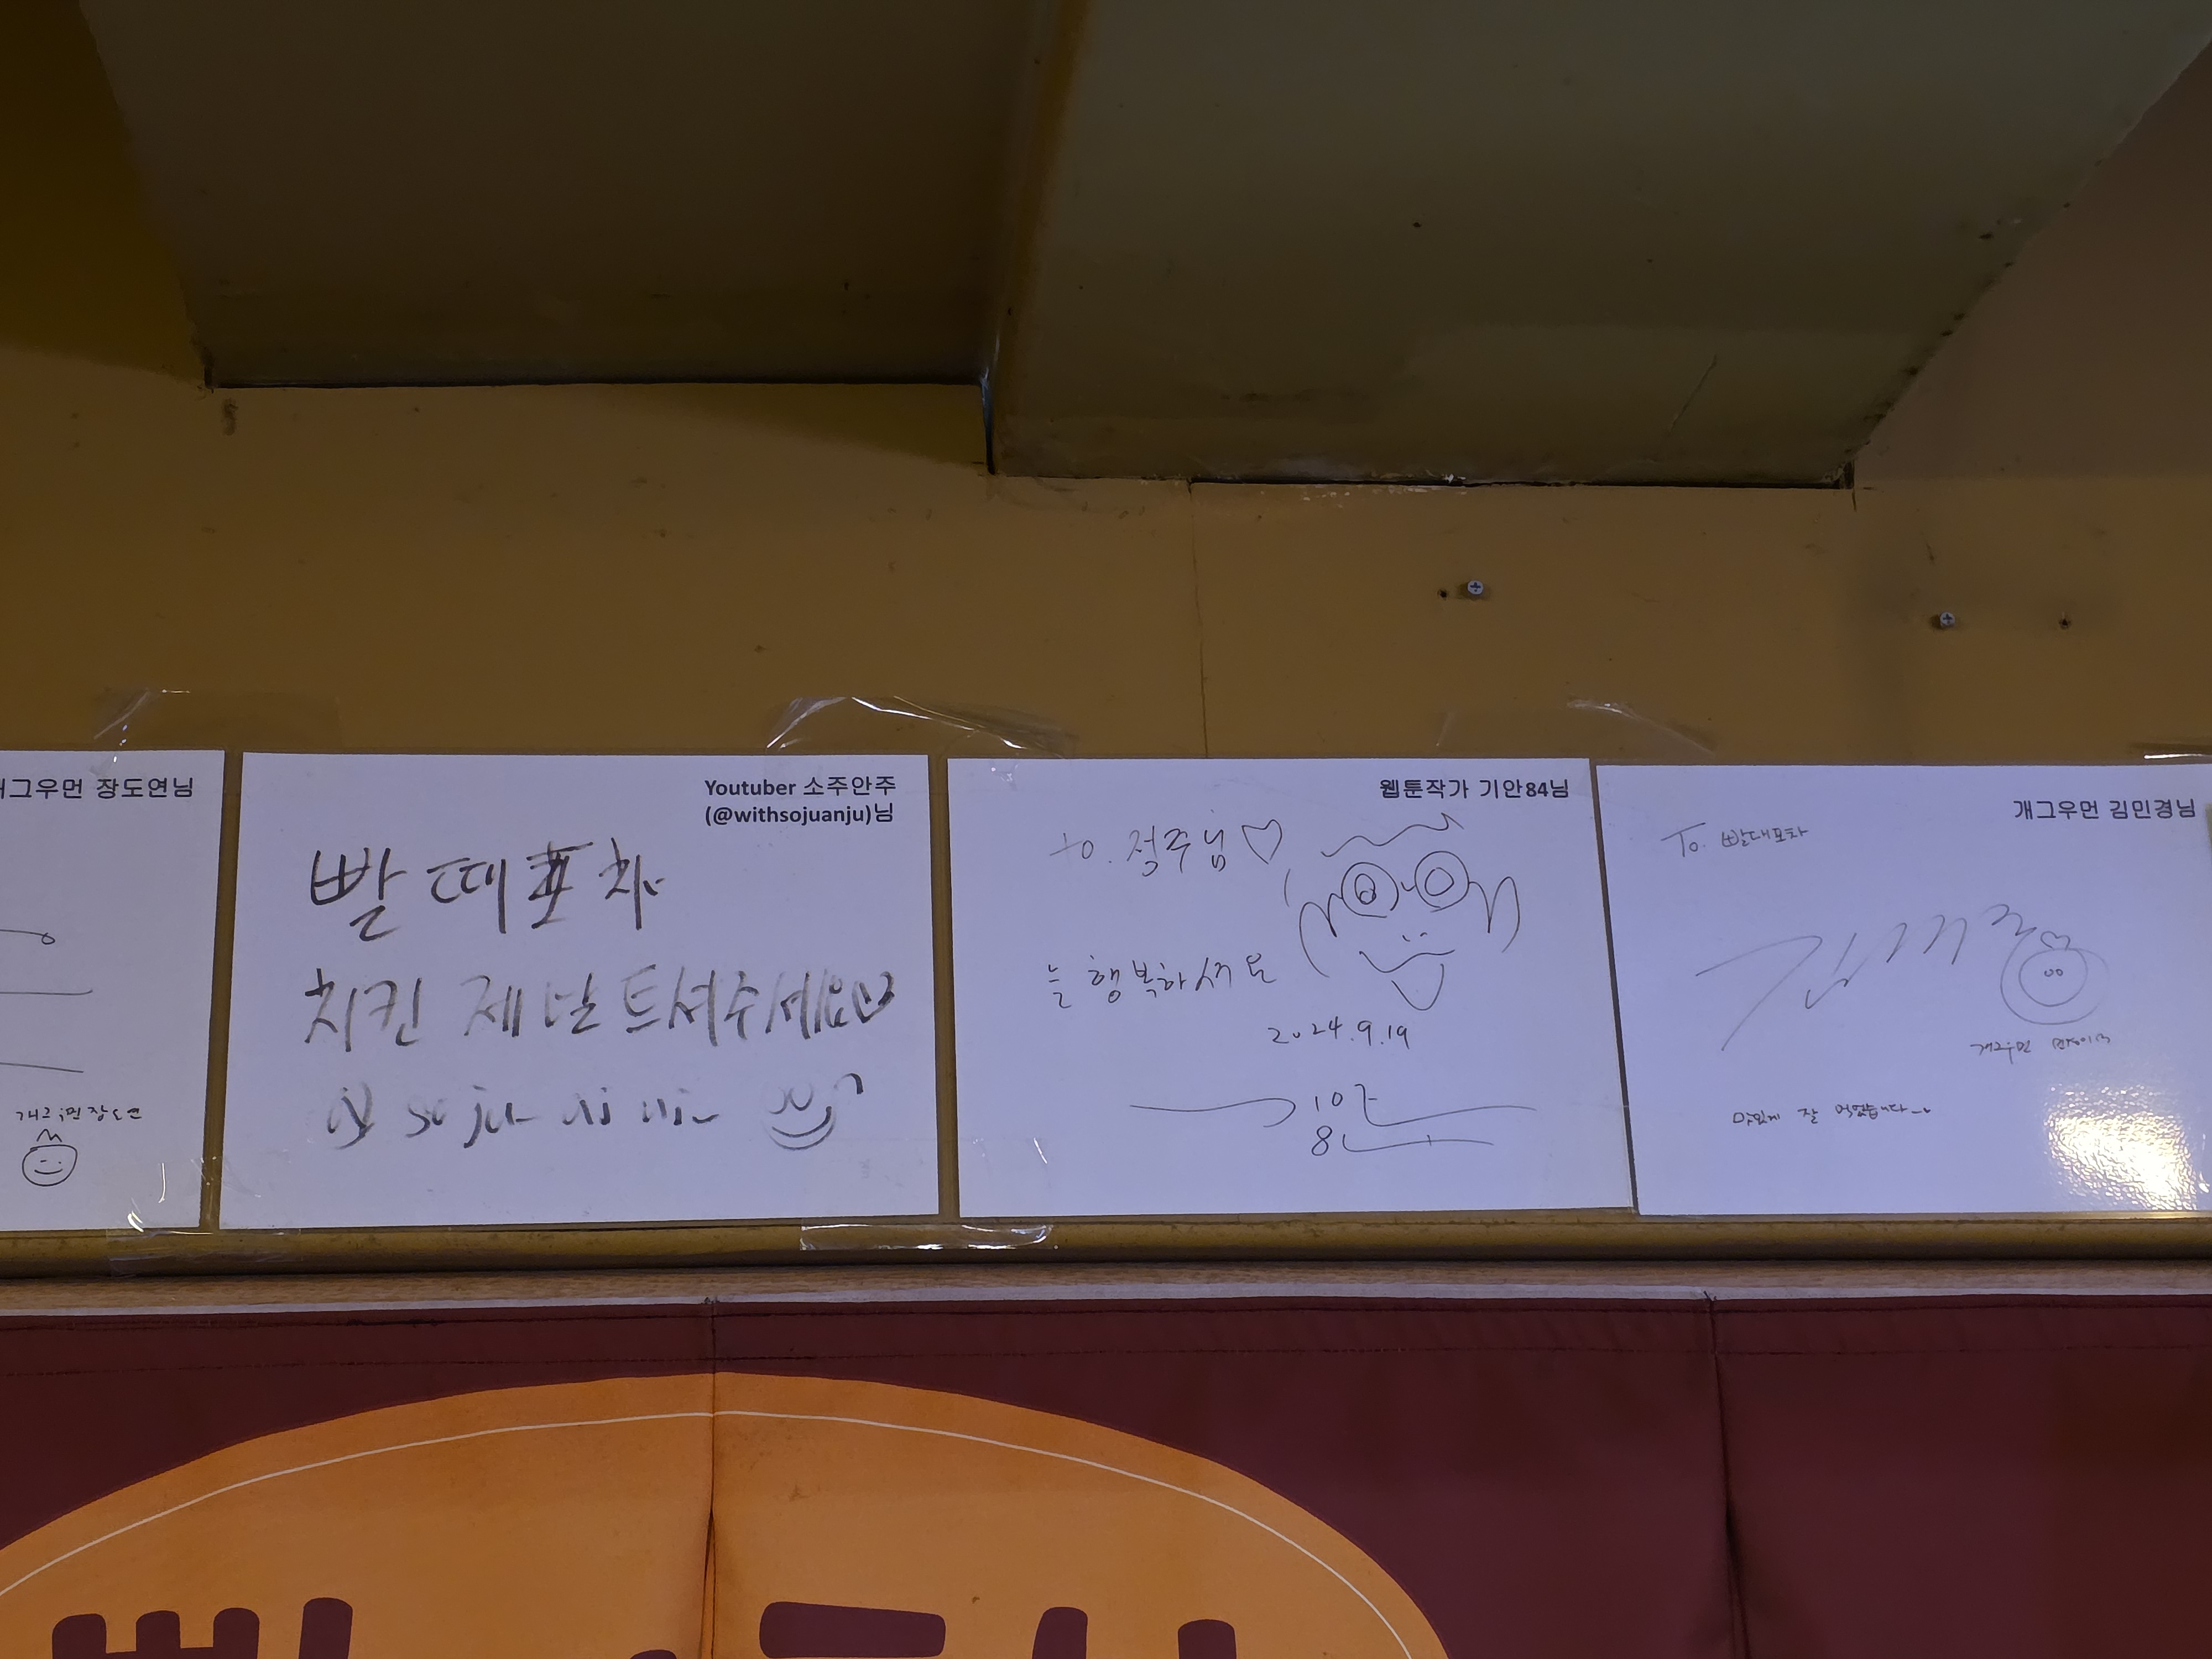 개그우먼 장도연님
개그우먼 장도연
Youtuber 소주안주
(@withsojuanju)님
빨때포차
치킨 제발 트셔주세요
웹툰작가 기안84님
to. 정주님♡
늘 행복하세요
2024.9.19
기안
84
개그우먼 김민경님
To. 빨대포차
개그우먼
맛있게 잘 먹었습니다~